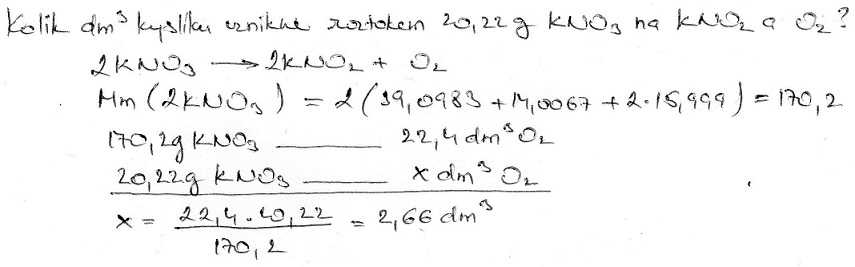 Kolik dm³ kyslíku vznikne roztokem 20,22 g KNO₃ na KNO₂ a O₂?
2KNO₃ → 2KNO₂ + O₂
Mm (2KNO₃) = 2(39,0983 + 14,0067 + 2·15,999) = 170,2
170,2g KNO₃ ——— 22,4 dm³ O₂
20,22g KNO₃ ——— x dm³ O₂
x = 22,4·20,22 / 170,2 = 2,66 dm³